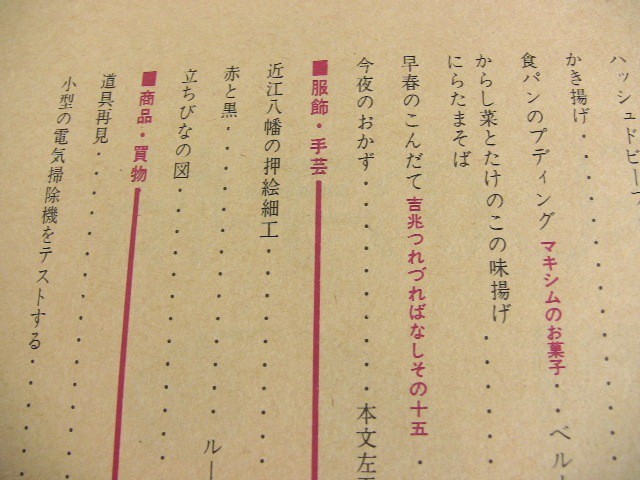 ハッシュドビーフ
かき揚げ
食パンのプディング マキシムのお菓子 ベル
からし菜とたけのこの味揚げ
にらたまそば
早春のこんだて 吉兆つれづればなしその十五
今夜のおかず 本文左
■服飾・手芸
近江八幡の押絵細工
赤と黒 ルー
立ちびなの図
■商品・買物
道具再見
小型の電気掃除機をテストする